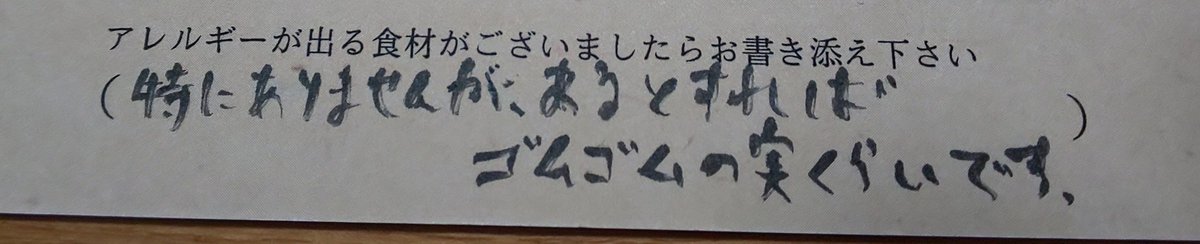 アレルギーが出る食材がございましたらお書き添え下さい
(特にありませんが、あるとすれば
ゴムゴムの実くらいです。)